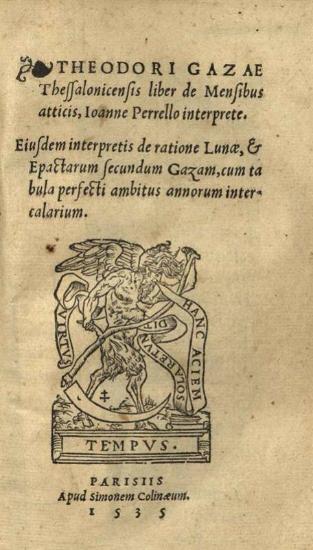 THEODORI GAZAE
Thessalonicensis liber de Mensibus
atticis, Ioanne Perrello interprete.
Eiusdem interpretis de ratione Lunæ, &
Epactarum secundum Gazam, cum ta
bula perfecti ambitus annorum inter-
calarium.
VIRTVS
HANC ACIEM
SOLA RETVN
DIT
TEMPVS.
PARISIIS
Apud Simonem Colinæum.
1535